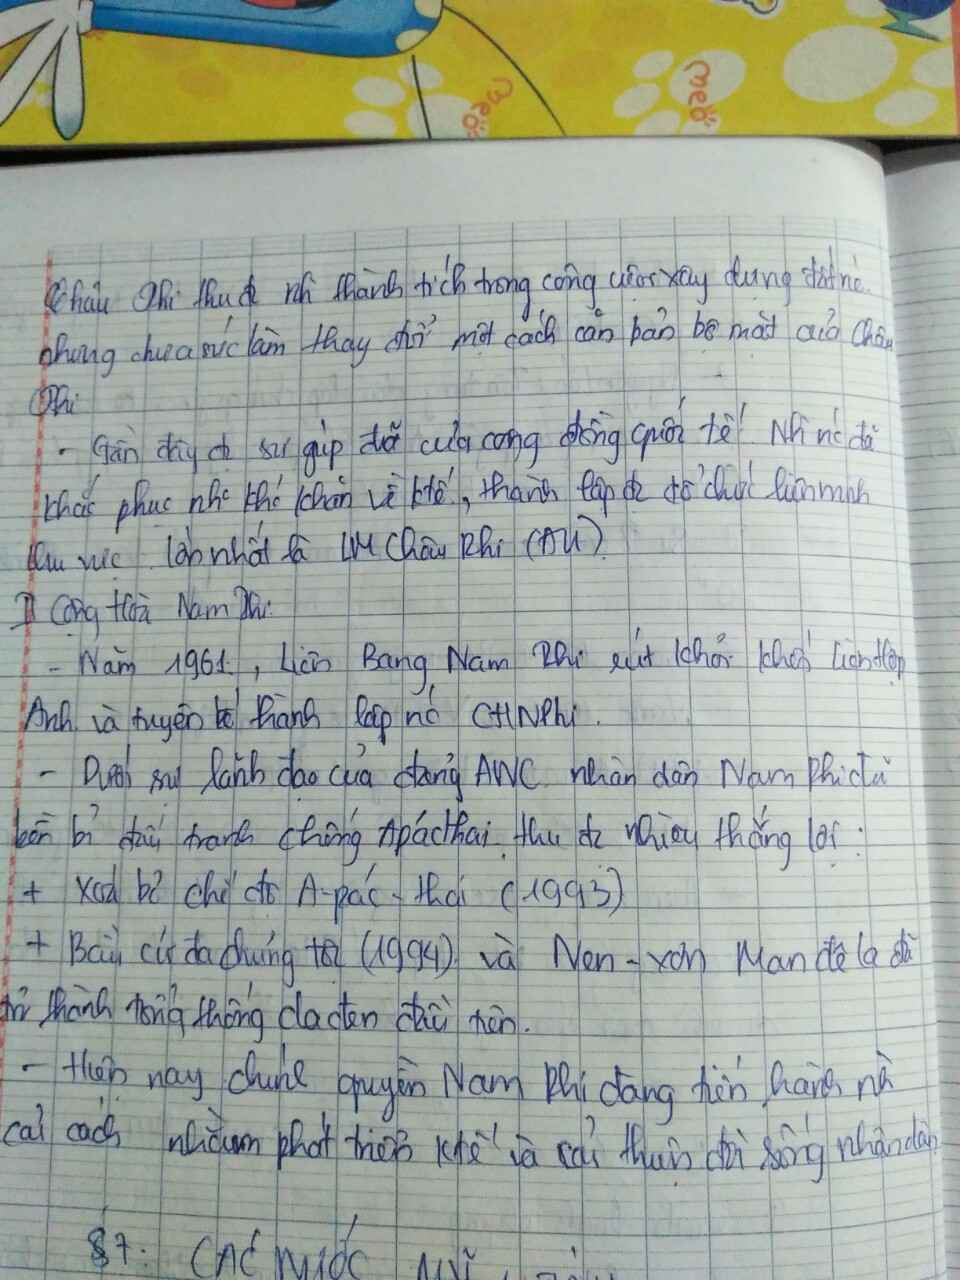 mèo
mèo
Châu Phi thu đc nh thành tích trong công cuộc xây dựng đất nc.
nhưng chưa sức làm thay đổi một cách căn bản bộ mặt của Châu
Phi
- Gần đây đc sự giúp đỡ của cộng đồng quốc tế Nh nc đã
khắc phục nh khó khăn về ktế, thành lập đc tổ chức liên minh
khu vực lớn nhất là LM Châu Phi (AU)
II Cộng Hoà Nam Phi.
- Năm 1961, Liên Bang Nam Phi rút khỏi khối Liên Hợp
Anh và tuyên bố thành lập nc CHNPhi.
- Dưới sự lãnh đạo của đảng ANC nhân dân Nam Phi đã
bền bỉ đấu tranh chống Apácthai, thu đc nhiều thắng lợi:
+ Xoá bỏ chế độ A-pác-thai (1993)
+ Bầu cử đa chủng tộc (1994) và Nen-xơn Manđêla đã
trở thành tổng thống da đen đầu tiên.
- Hiện nay chính quyền Nam Phi đang tiến hành nh
cải cách nhằm phát triển ktế và cải thiện đời sống nhân dân
§7. CÁC NƯỚC MĨ